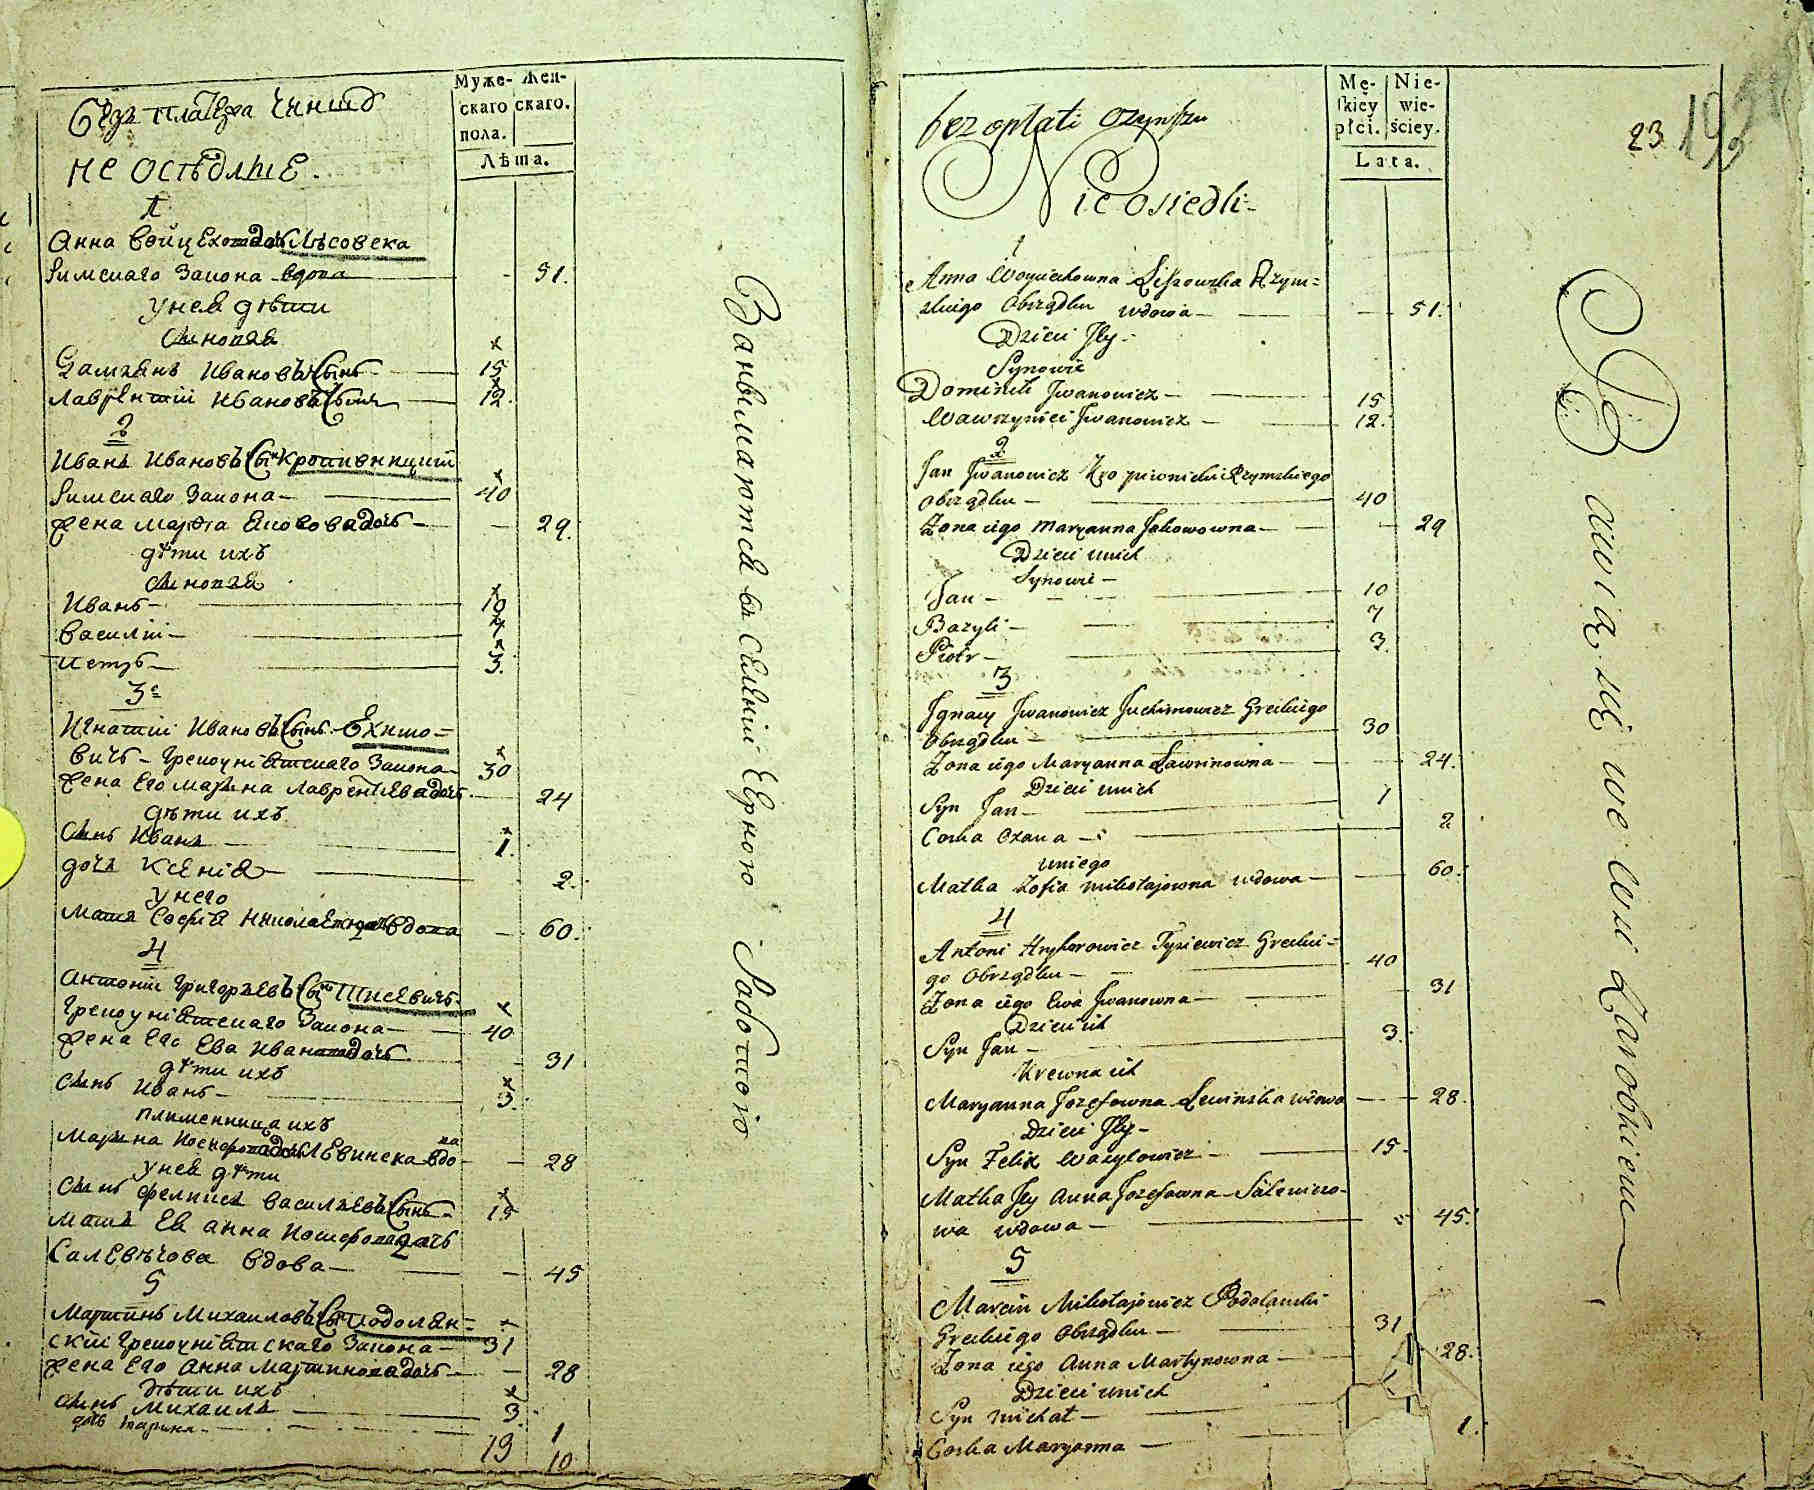 Муже- Жен-
скаго скаго.
пола.
Лѣта.
безъ платежа чинша
не осѣдлые.
1
Анна Войцехова дочь Лисовска
римскаго закона вдова — - 51.
у нея дѣти
сыновя
Доминъ Ивановъ сынъ — 15
Лаврентій Ивановъ сынъ — 12.
2
Иванъ Ивановъ сынъ Кропивницкій
римскаго закона — 40
жена Марта Якововa дочь — - 29.
дѣти ихъ
сыновя
Иванъ — 10
Василій — 7
Петръ — 3.
3
Игнатій Ивановъ сынъ Ехимо=
вичъ — грекоуніятскаго закона — 30
жена его Марина Лаврентіева дочь — 24
дѣти ихъ
сынъ Иванъ — 1.
дочь Ксенія — 2.
у него
мать Софія Николаева дочь вдова — 60.
4
Антоній Григорьевъ сынъ Тисевичъ
грекоуніятскаго закона — 40
жена его Ева Иванова дочь — 31
дѣти ихъ
сынъ Иванъ — 3.
племенница ихъ
Марина Иосифова дочь Левинска вдова — 28
у нея дѣти
сынъ Феликсъ Васильевъ сынъ — 15
мать ея Анна Иосифова дочь
Салевичова вдова — 45
5
Мартинъ Михаиловъ сынъ Подолян=
скій грекоуніятскаго закона — 31
жена его Анна Мартинова дочь — 28
дѣти ихъ
сынъ Михаилъ — 3.
дочь Марина — 1
19 10
Занимаются въ селеніи черною работою
Mę- Nie-
skiey wie-
płci. ściey.
Lata.
23
193
bez opłati czynszu
Nie osiedli-
1
Anna Woyciechowna Lissowska Rzym=
skiego Obrządku wdowa — 51.
Dzieci Jey-
Synowie
Dominik Jwanowicz — 15
Wawrzyniec Jwanowicz — 12.
2
Jan Jwanowicz Kropiwnicki Rzymskiego
Obrządku — 40
Żona iego Maryanna Jakowowna — 29
Dzieci u nich
Synowie —
Jan — 10
Bazyli — 7
Piotr — 3.
3
Jgnacy Jwanowicz Juchimowicz Greckiego
Obrządku — 30
Żona iego Maryanna Ławrinowna — 24.
Dzieci u nich
Syn Jan — 1
Corka Oxana — 2
u niego
Matka Zofia Mikołajowna wdowa — 60.
4
Antoni Hryhorowicz Tysiewicz Grecki=
go Obrządku — 40
Żona iego Ewa Jwanowna — 31
Dzieci ich
Syn Jan — 3.
Krewna ich
Maryanna Jozefowna Lewinska wdowa — 28.
Dzieci Jey-
Syn Felix Wazylowicz — 15.
Matka Jey Anna Jozefowna Salewiczo-
wa wdowa — 45.
5
Marcin Mikołajowicz Podolanski
Greckiego Obrządku — 31
Żona iego Anna Martynowna — 28.
Dzieci u nich
Syn Michał —
Corka Maryanna — 1.
Bawią się we wsi Zarobkiem